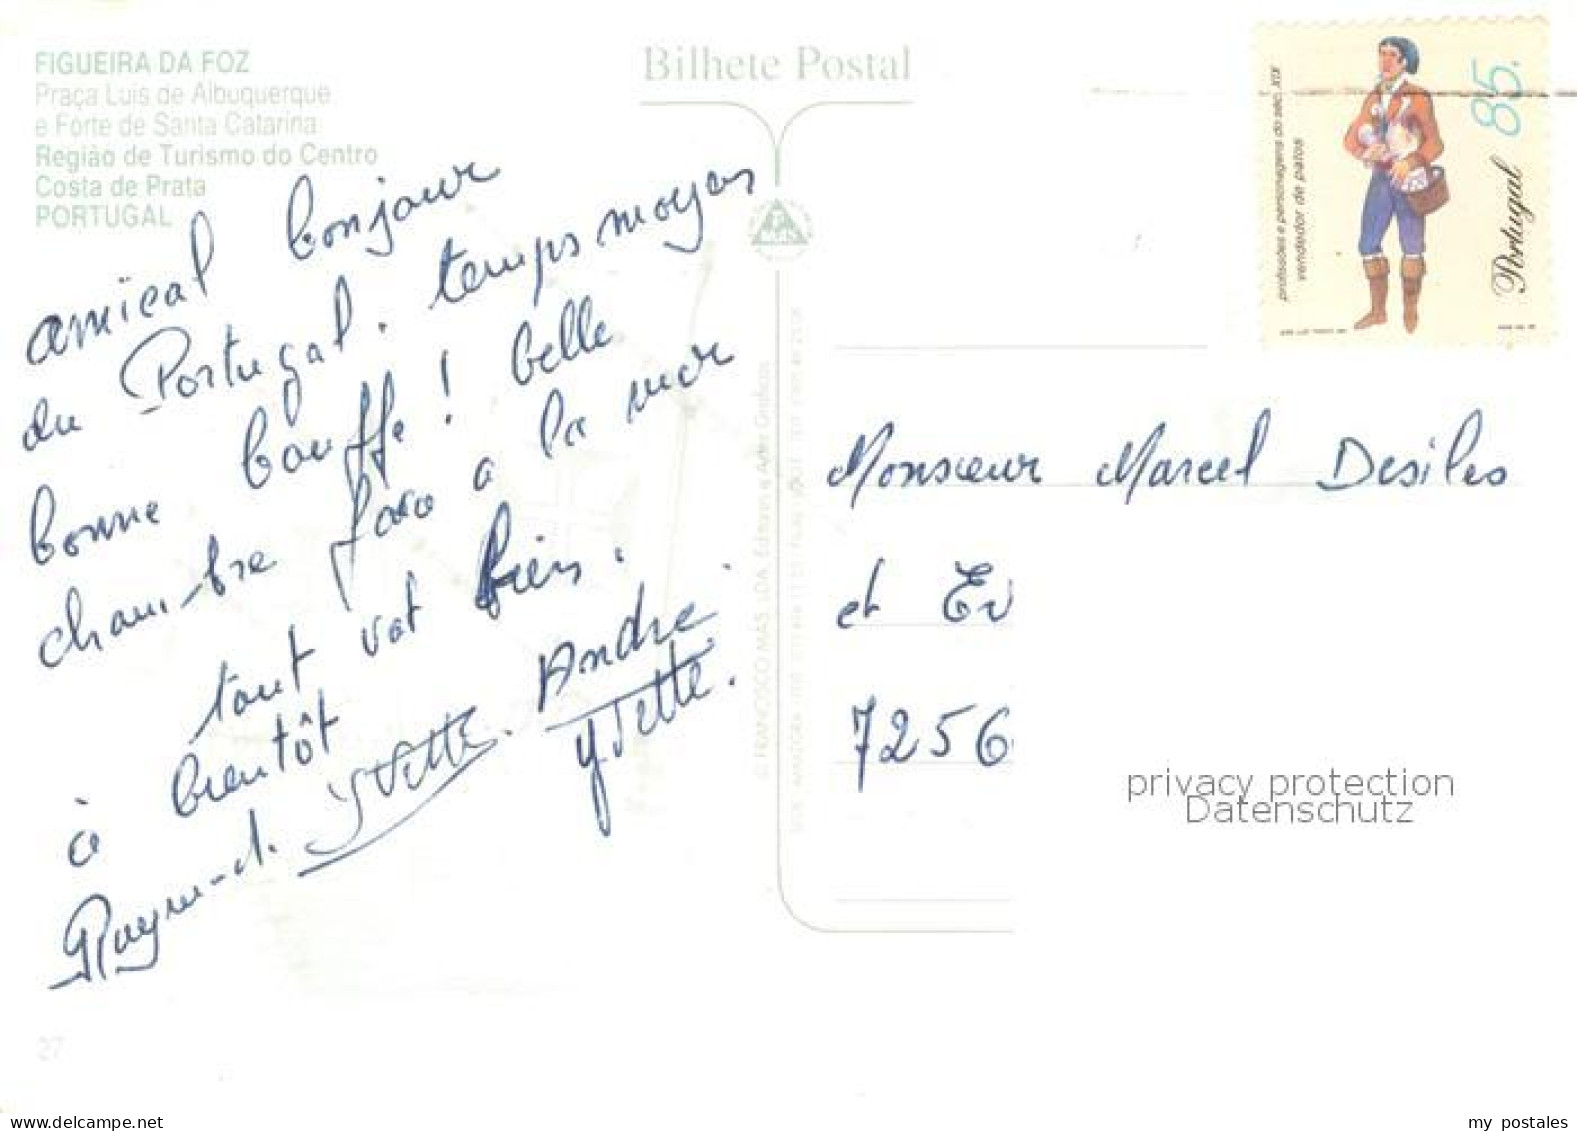 FIGUEIRA DA FOZ
Praça Luis de Albuquerque
e Forte de Santa Catarina
Região de Turismo do Centro
Costa de Prata
PORTUGAL
Bilhete Postal
amical bonjour
du Portugal. temps moyen
bonne bouffe ! belle
chambre face a la mer
tout vat bien.
à bientôt
Raymond. Yvette. André
Yvette.
© FRANCISCO MAS, LDA. Editores e Artes Gráficas
profissões e personagens do séc. XIX
vendedor de patos
Portugal 85.
Monsieur Marcel Desiles
et
7256
privacy protection
Datenschutz
27
my postales